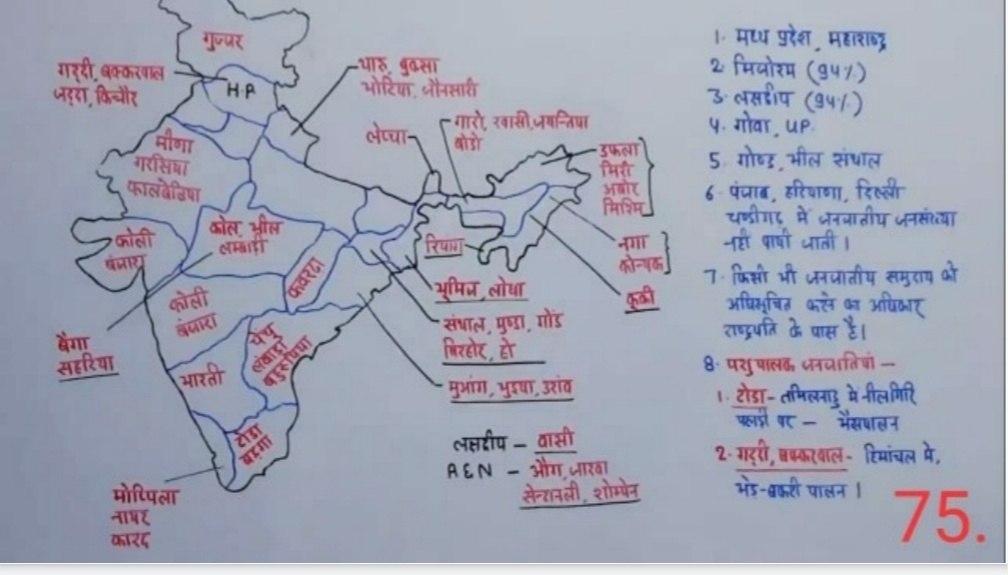 गुज्जर
गद्दी, बक्करवाल
जद्दा, किन्नौर
H.P
थारू, बुक्सा
भोटिया, जौनसारी
लेप्चा
गारो, खासी, जयन्तिया
बोडो
डफला
मिरी
अबोर
मिश्मि
मीणा
गरसिया
कालबेडिया
कोली
बंजारा
कोल, भील
लम्बाडी
कवरदा
रियाग
नगा
कोन्यक
कूकी
भूमिज, लोधा
संथाल, मुण्डा, गोंड
बिरहोर, हो
मुआंग, भुइया, उरांव
कोली
बंजारा
बैगा
सहरिया
चेंचू
लंबाडा
बहुरूपिया
भारती
टोडा
बड़गा
मोप्पिला
नायर
कादर
लक्षद्वीप - वासी
A&N - औंग, जारवा
सेन्टानली, शोम्पेन
1. मध्य प्रदेश, महाराष्ट्र
2 मिजोरम (94%)
3. लक्षद्वीप (94%)
4. गोवा, UP.
5. गोण्ड, भील संथाल
6. पंजाब, हरियाणा, दिल्ली
चण्डीगढ़ में जनजातीय जनसंख्या
नही पायी जाती।
7. किसी भी जनजातीय समुदाय को
अधिसूचित करने का अधिकार
राष्ट्रपति के पास है।
8. पशुपालक जनजातियां -
1. टोडा - तमिलनाडु में नीलगिरि
पहाड़ी पर - भैंसपालन
2. गद्दी, बक्करवाल - हिमांचल में,
भेड-बकरी पालन।
75.